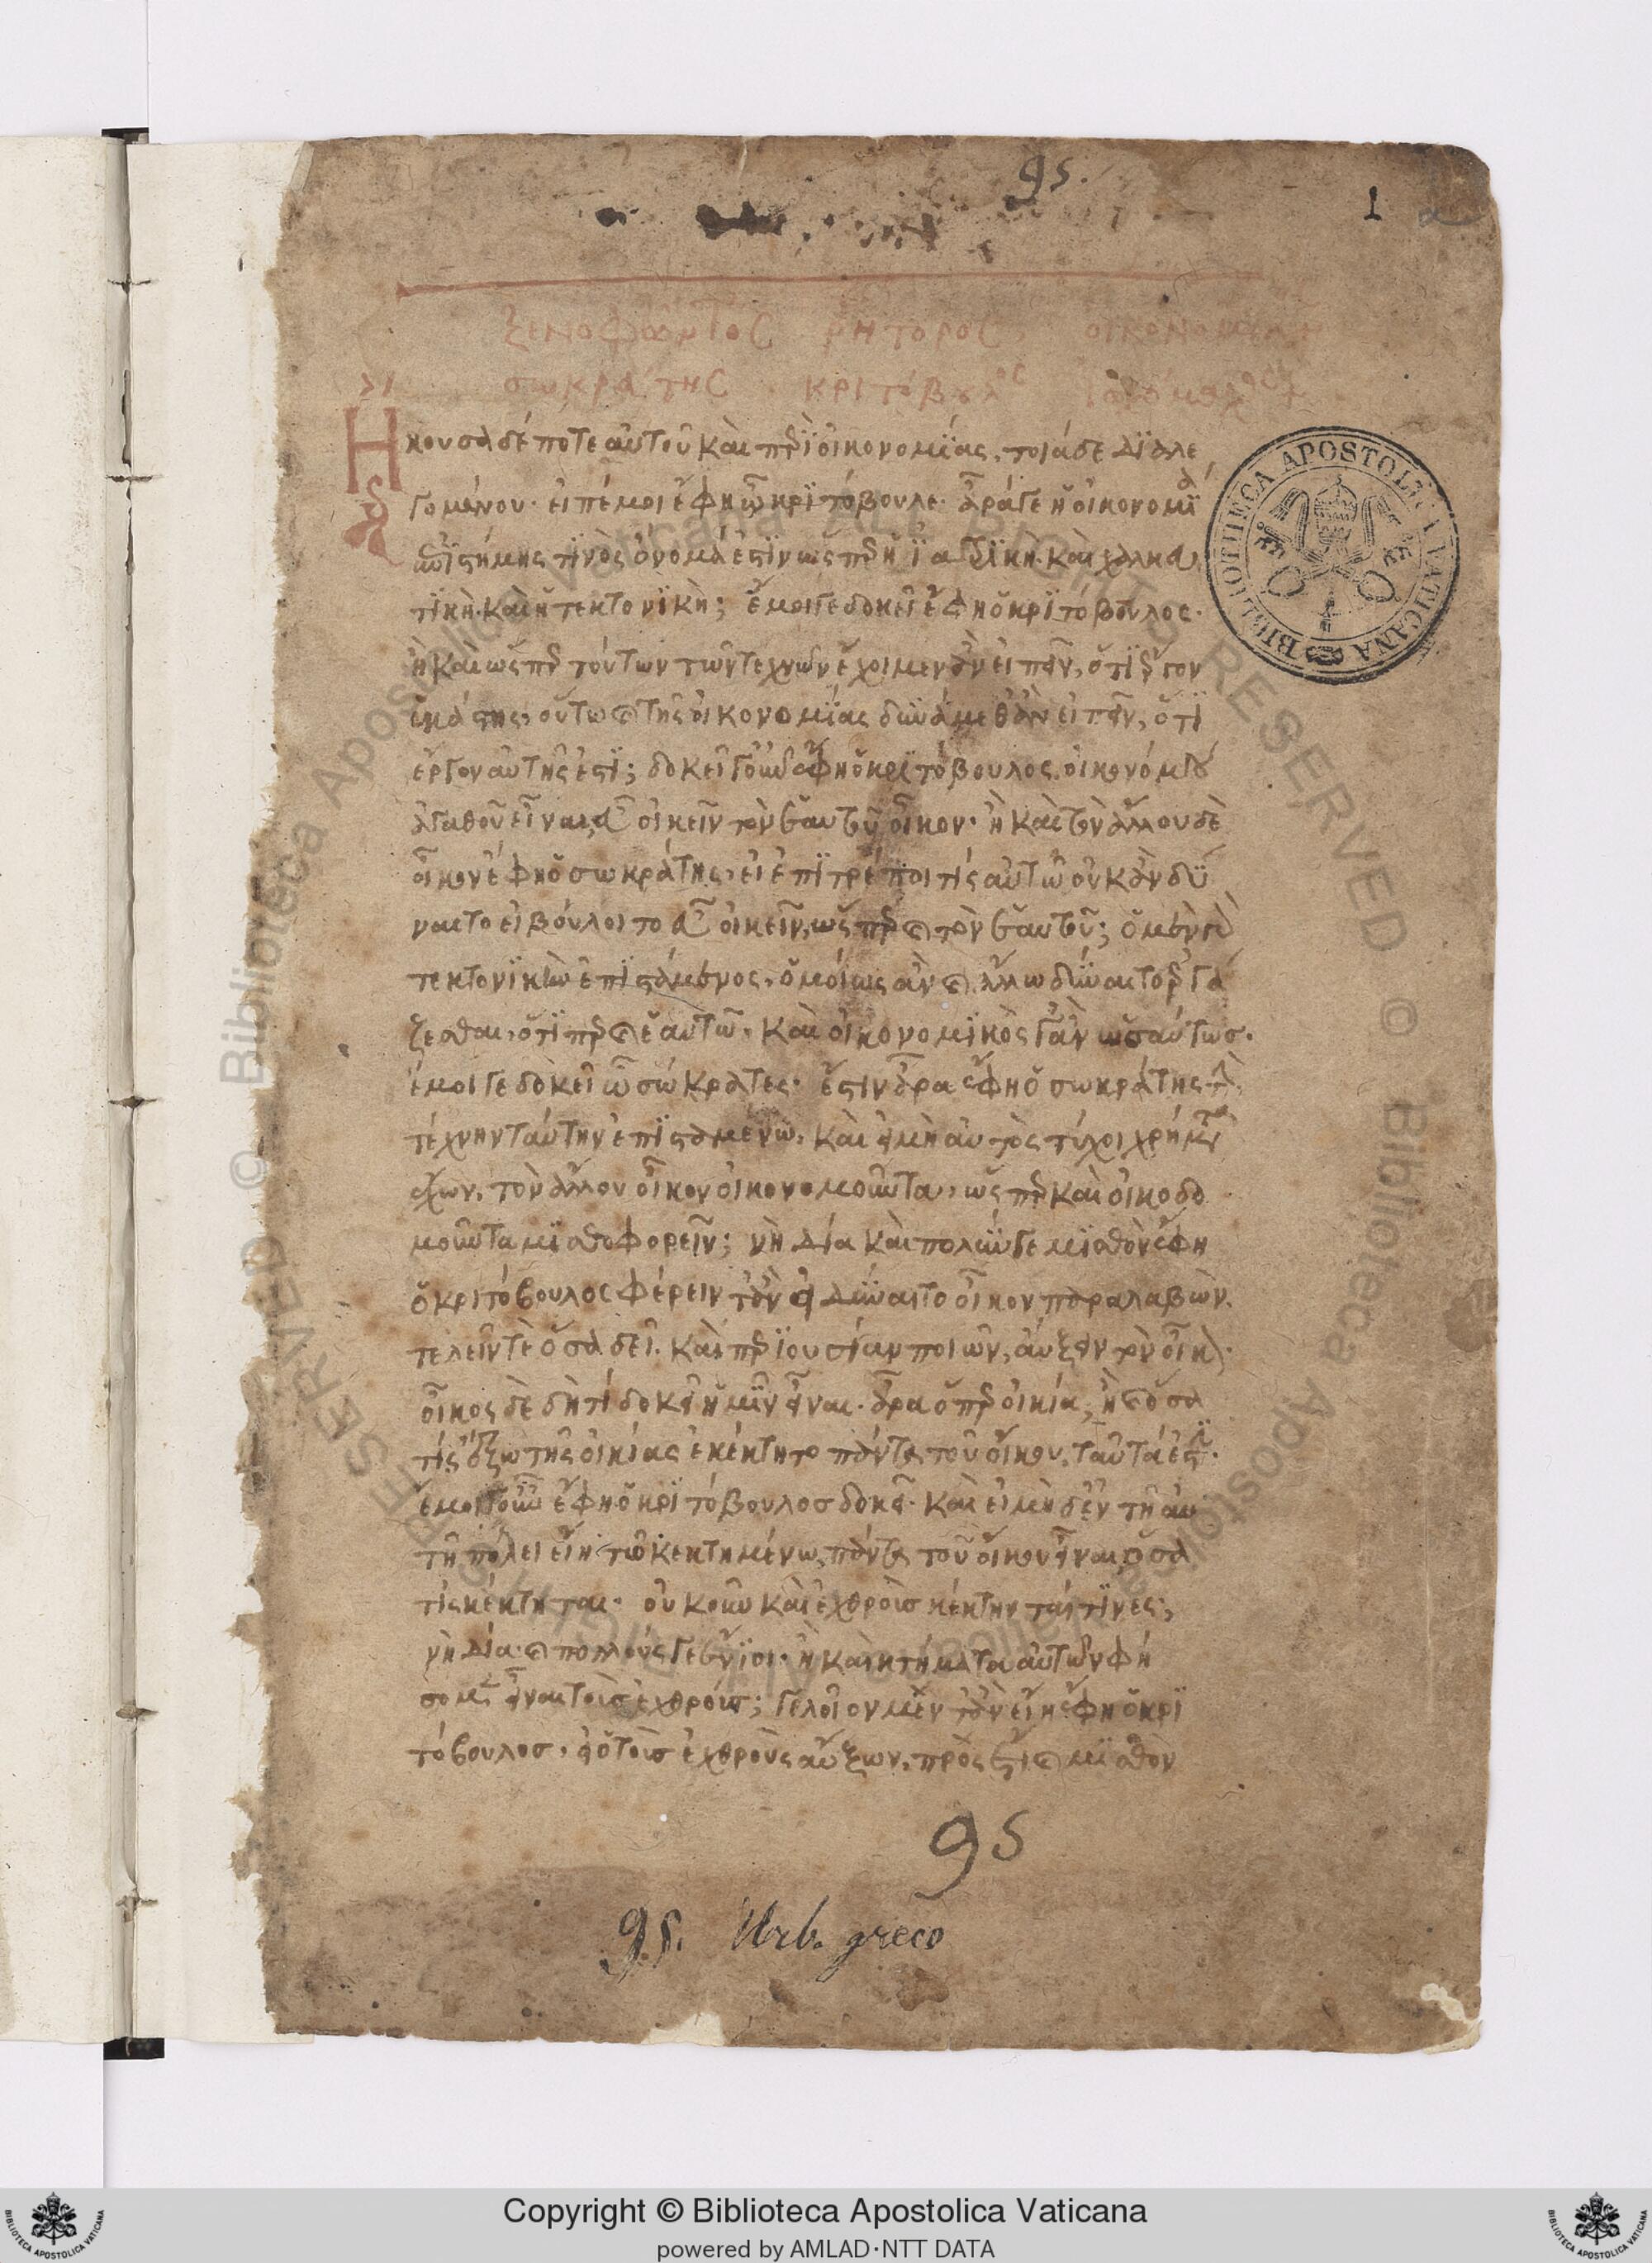 95.
1
ξενοφῶντος ῥήτορος οἰκονομικὸς
σωκράτης κριτόβουλος
Ηκουσα δέ ποτε αὐτοῦ καὶ περὶ οἰκονομίας, τοιάδε διαλε
γομένου· εἰπέ μοι ἔφη ὦ κριτόβουλε· ἆρά γε ἡ οἰκονομία
ἐπιστήμης τινὸς ὄνομά ἐστιν ὥσπερ ἡ ἰατρικὴ καὶ χαλκευ
τικὴ καὶ ἡ τεκτονική; ἔμοιγε δοκεῖ ἔφη ὁ κριτόβουλος·
ἦ καὶ ὥσπερ τούτων τῶν τεχνῶν ἔχοιμεν ἂν εἰπεῖν, ὅτι ἔργον
ἑκάστης, οὕτω καὶ τῆς οἰκονομίας δυνάμεθ' ἂν εἰπεῖν, ὅτι
ἔργον αὐτῆς ἐστί; δοκεῖ γοῦν ἔφη ὁ κριτόβουλος οἰκονόμου
ἀγαθοῦ εἶναι εὖ οἰκεῖν τὸν ἑαυτοῦ οἶκον· ἦ καὶ τὸν ἄλλου δὲ
οἶκον ἔφη ὁ σωκράτης, εἰ ἐπιτρέποι τίς αὐτῶ οὐκ ἂν δύ
ναιτο εἰ βούλοιτο εὖ οἰκεῖν, ὥσπερ καὶ τὸν ἑαυτοῦ; ὁ μὲν γὰρ
τεκτονικὴν ἐπιστάμενος, ὁμοίως ἂν καὶ ἄλλω δύναιτο ἐργά
ζεσθαι, ὅτιπερ καὶ ἑαυτῶ· καὶ οἰκονομικὸς γ' ἂν ὡσαύτως.
ἔμοιγε δοκεῖ ὦ σώκρατες· ἔστιν ἄρα ἔφη ὁ σωκράτης τὴν
τέχνην ταύτην ἐπισταμένω, καὶ εἰ μὴ αὐτὸς τύχοι χρήματα
ἔχων, τὸν ἄλλον οἶκον οἰκονομοῦντα, ὥσπερ καὶ οἰκοδο
μοῦντα μισθοφορεῖν; νὴ δία καὶ πολύν γε μισθὸν ἔφη
ὁ κριτόβουλος φέρειν τ' ἂν εἰ δύναιτο οἶκον παραλαβὼν.
τελεῖν τὲ ὅσα δεῖ. καὶ περιουσίαν ποιῶν, αὔξειν τὸν οἶκον·
οἶκος δὲ δὴ τί δοκεῖ ἡμῖν εἶναι· ἆρα ὅπερ οἰκία, ἢ καὶ ὅσα
τίς ἔξω τῆς οἰκίας ἐκέκτητο πάντα τοῦ οἴκου, ταῦτά ἐστιν·
ἔμοιγ' οὖν ἔφη ὁ κριτόβουλοσ δοκεῖ· καὶ εἰ μὴ δ' ἐν τῇ αὐ
τῇ πόλει εἴη τῶ κεκτημένω, πάντα τοῦ οἴκου εἶναι ὅσα
τὶς κέκτηται· οὐκοῦν καὶ ἐχθροὺσ κέκτηνταί τινες;
νὴ δία καὶ πολλούς γε ἔνιοι· ἦ καὶ κτήματα αὐτῶν φή
σομεν εἶναι τοὺσ ἐχθρούσ; γελοῖον μὲν τ' ἂν εἴη ἔφη ὁ κρι
τόβουλοσ, εἰ ὁ τοὺσ ἐχθροὺς αὔξων, πρὸς ἔτι καὶ μισθὸν
95
95. Urb. greco
BIBLIOTHECA APOSTOLICA VATICANA
Copyright © Biblioteca Apostolica Vaticana
powered by AMLAD·NTT DATA